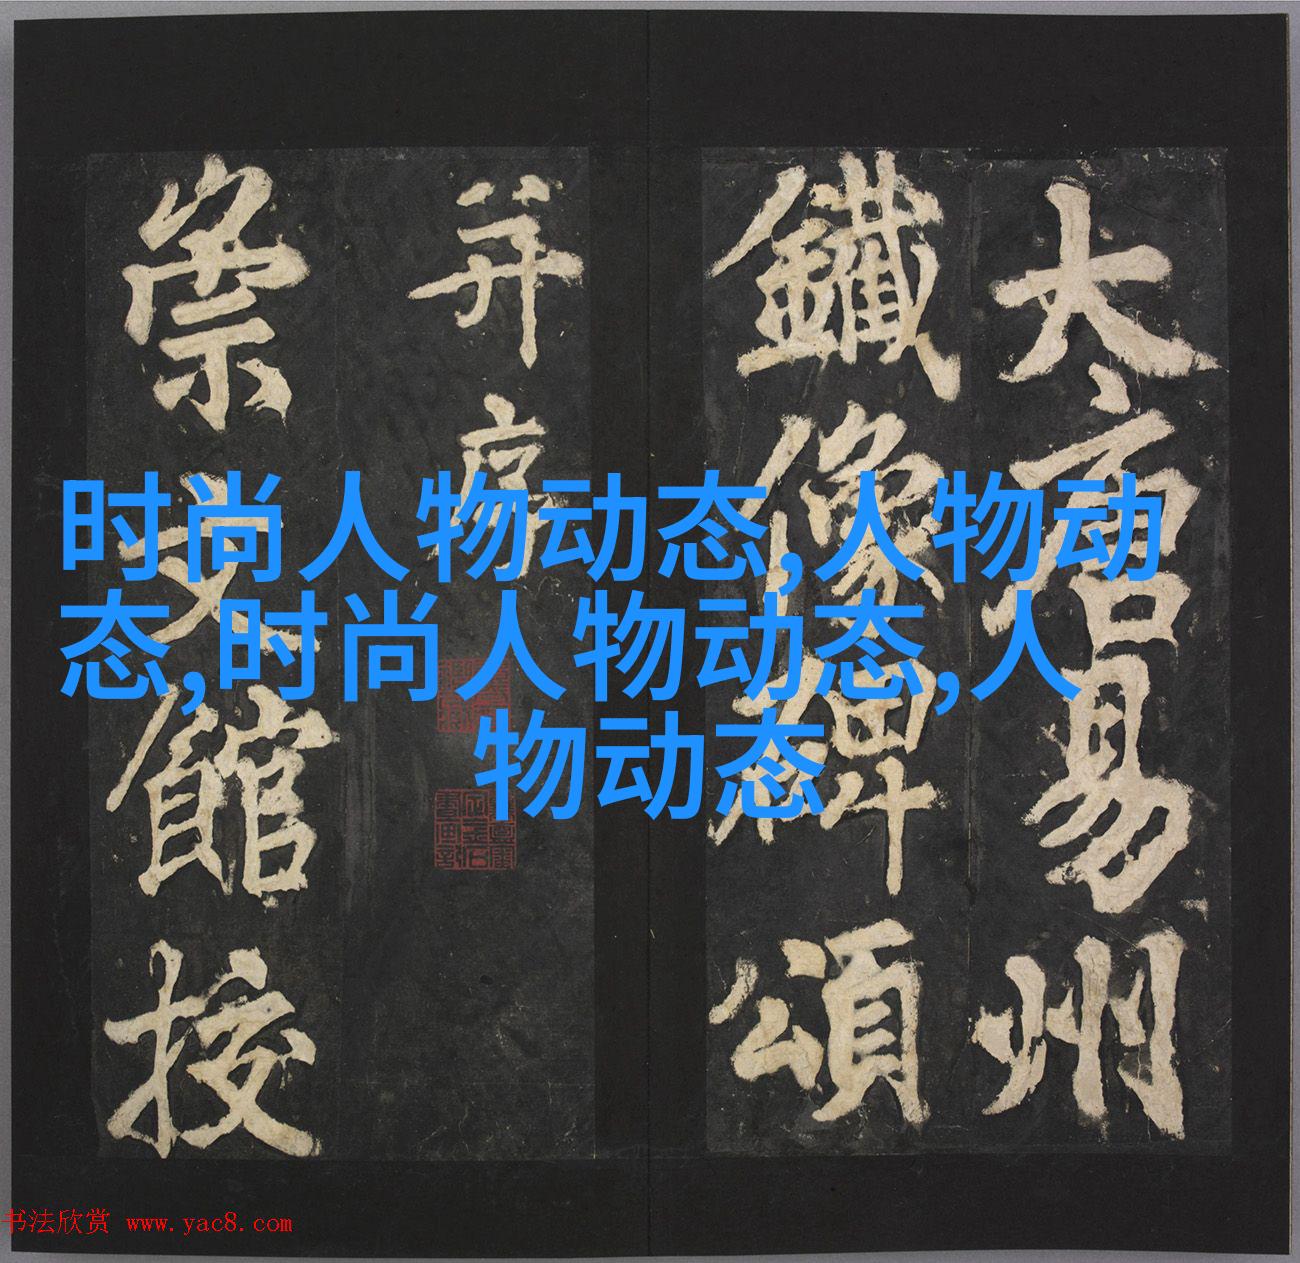 大唐易州
鐵像碑頌
并序
崇文館挍
时尚人物动态,人物动
态,时尚人物动态,人
物动态
书法欣赏 www.yac8.com